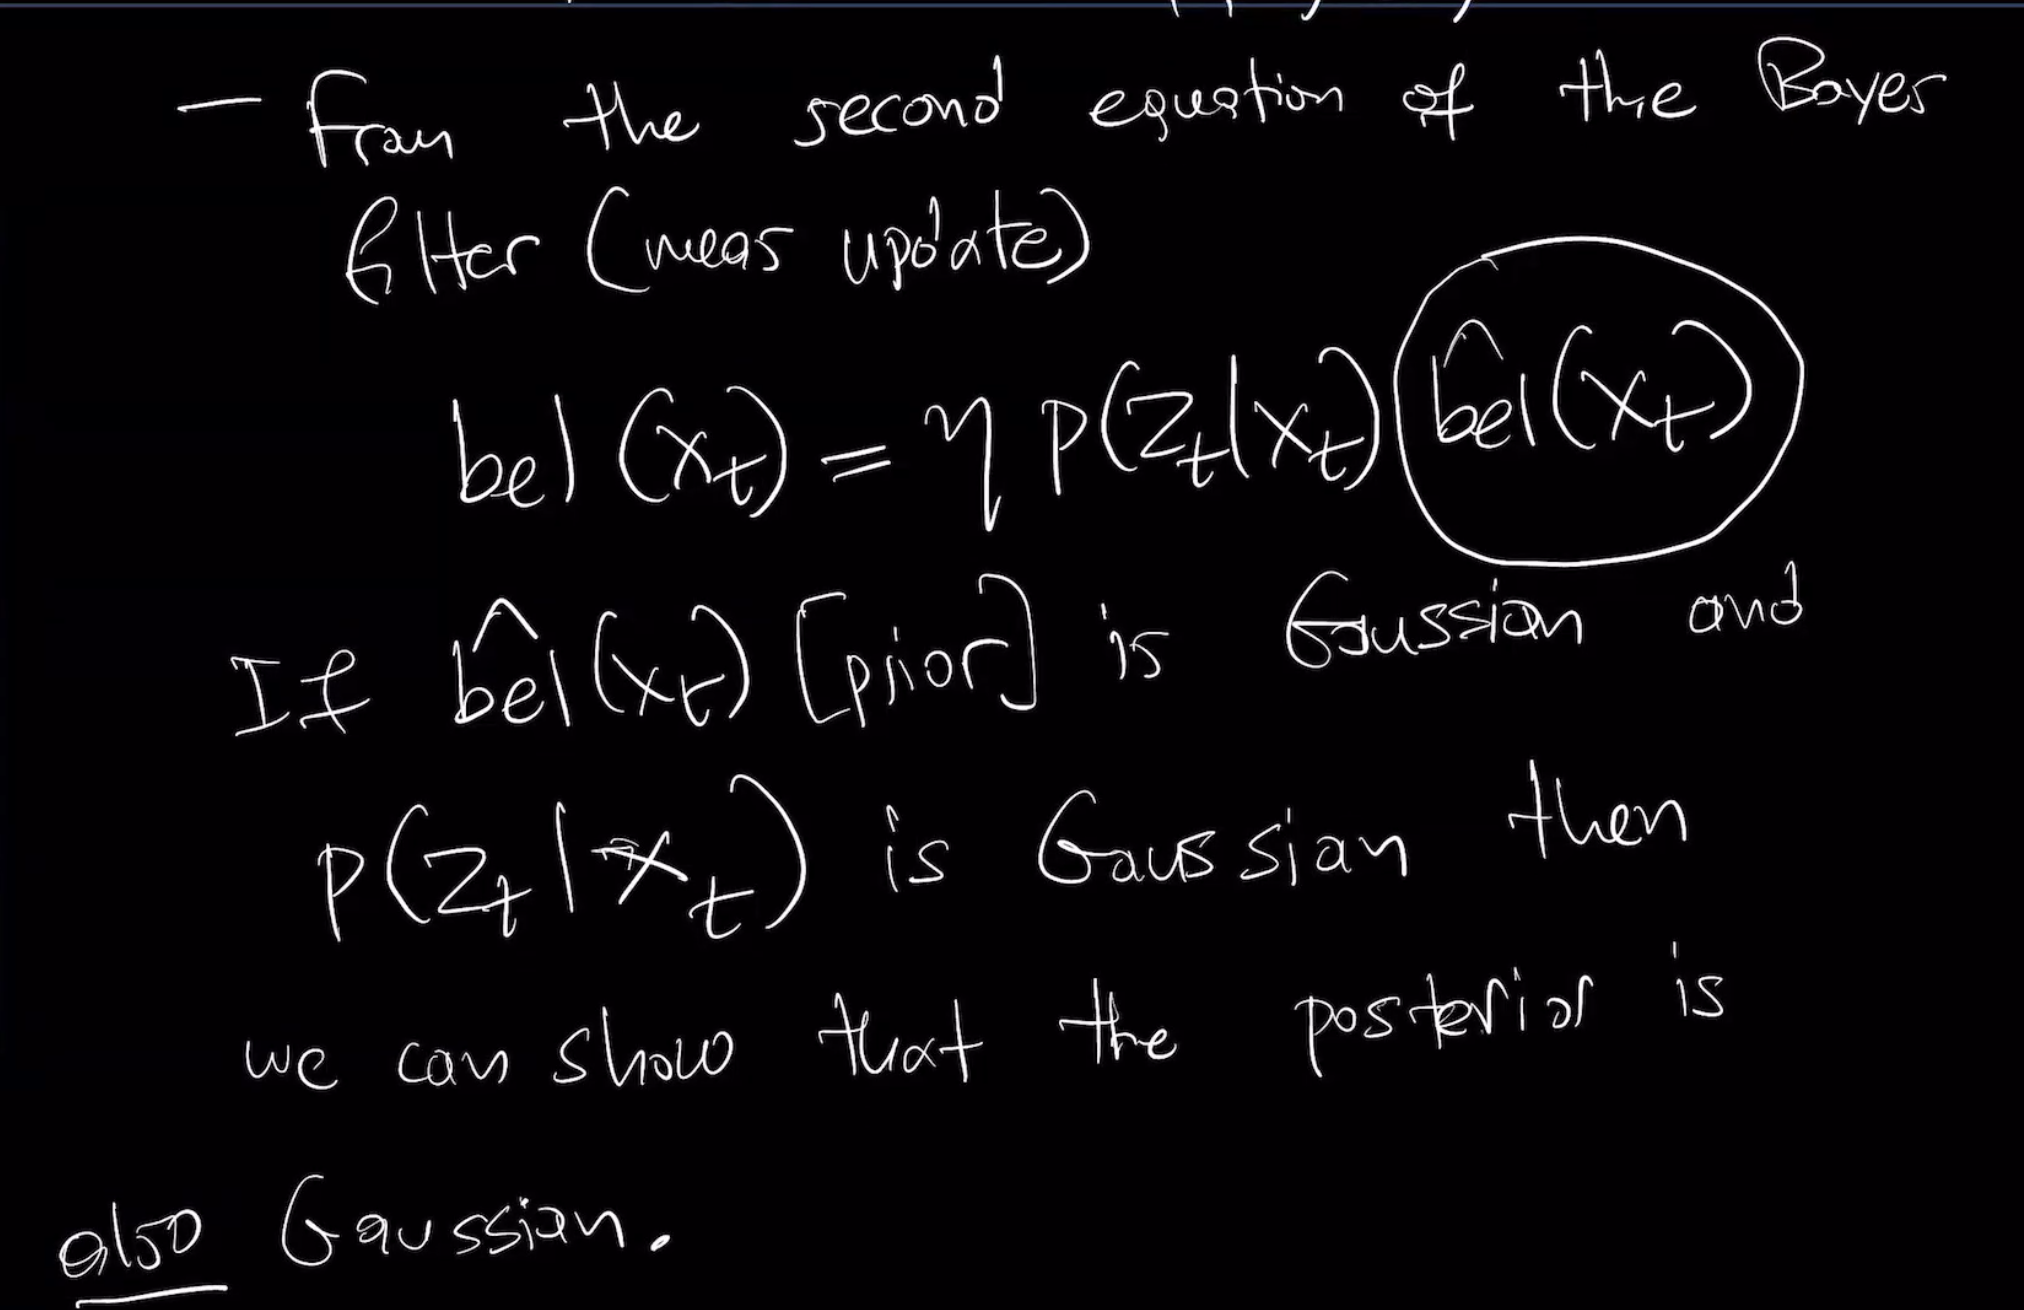 - From the second equation of the Bayes
filter (meas update)
bel (x_t) = η p(z_t|x_t) b̂el(x_t)
If b̂el(x_t) [prior] is Gaussian and
p(z_t|x_t) is Gaussian then
we can show that the posterior is
also Gaussian.